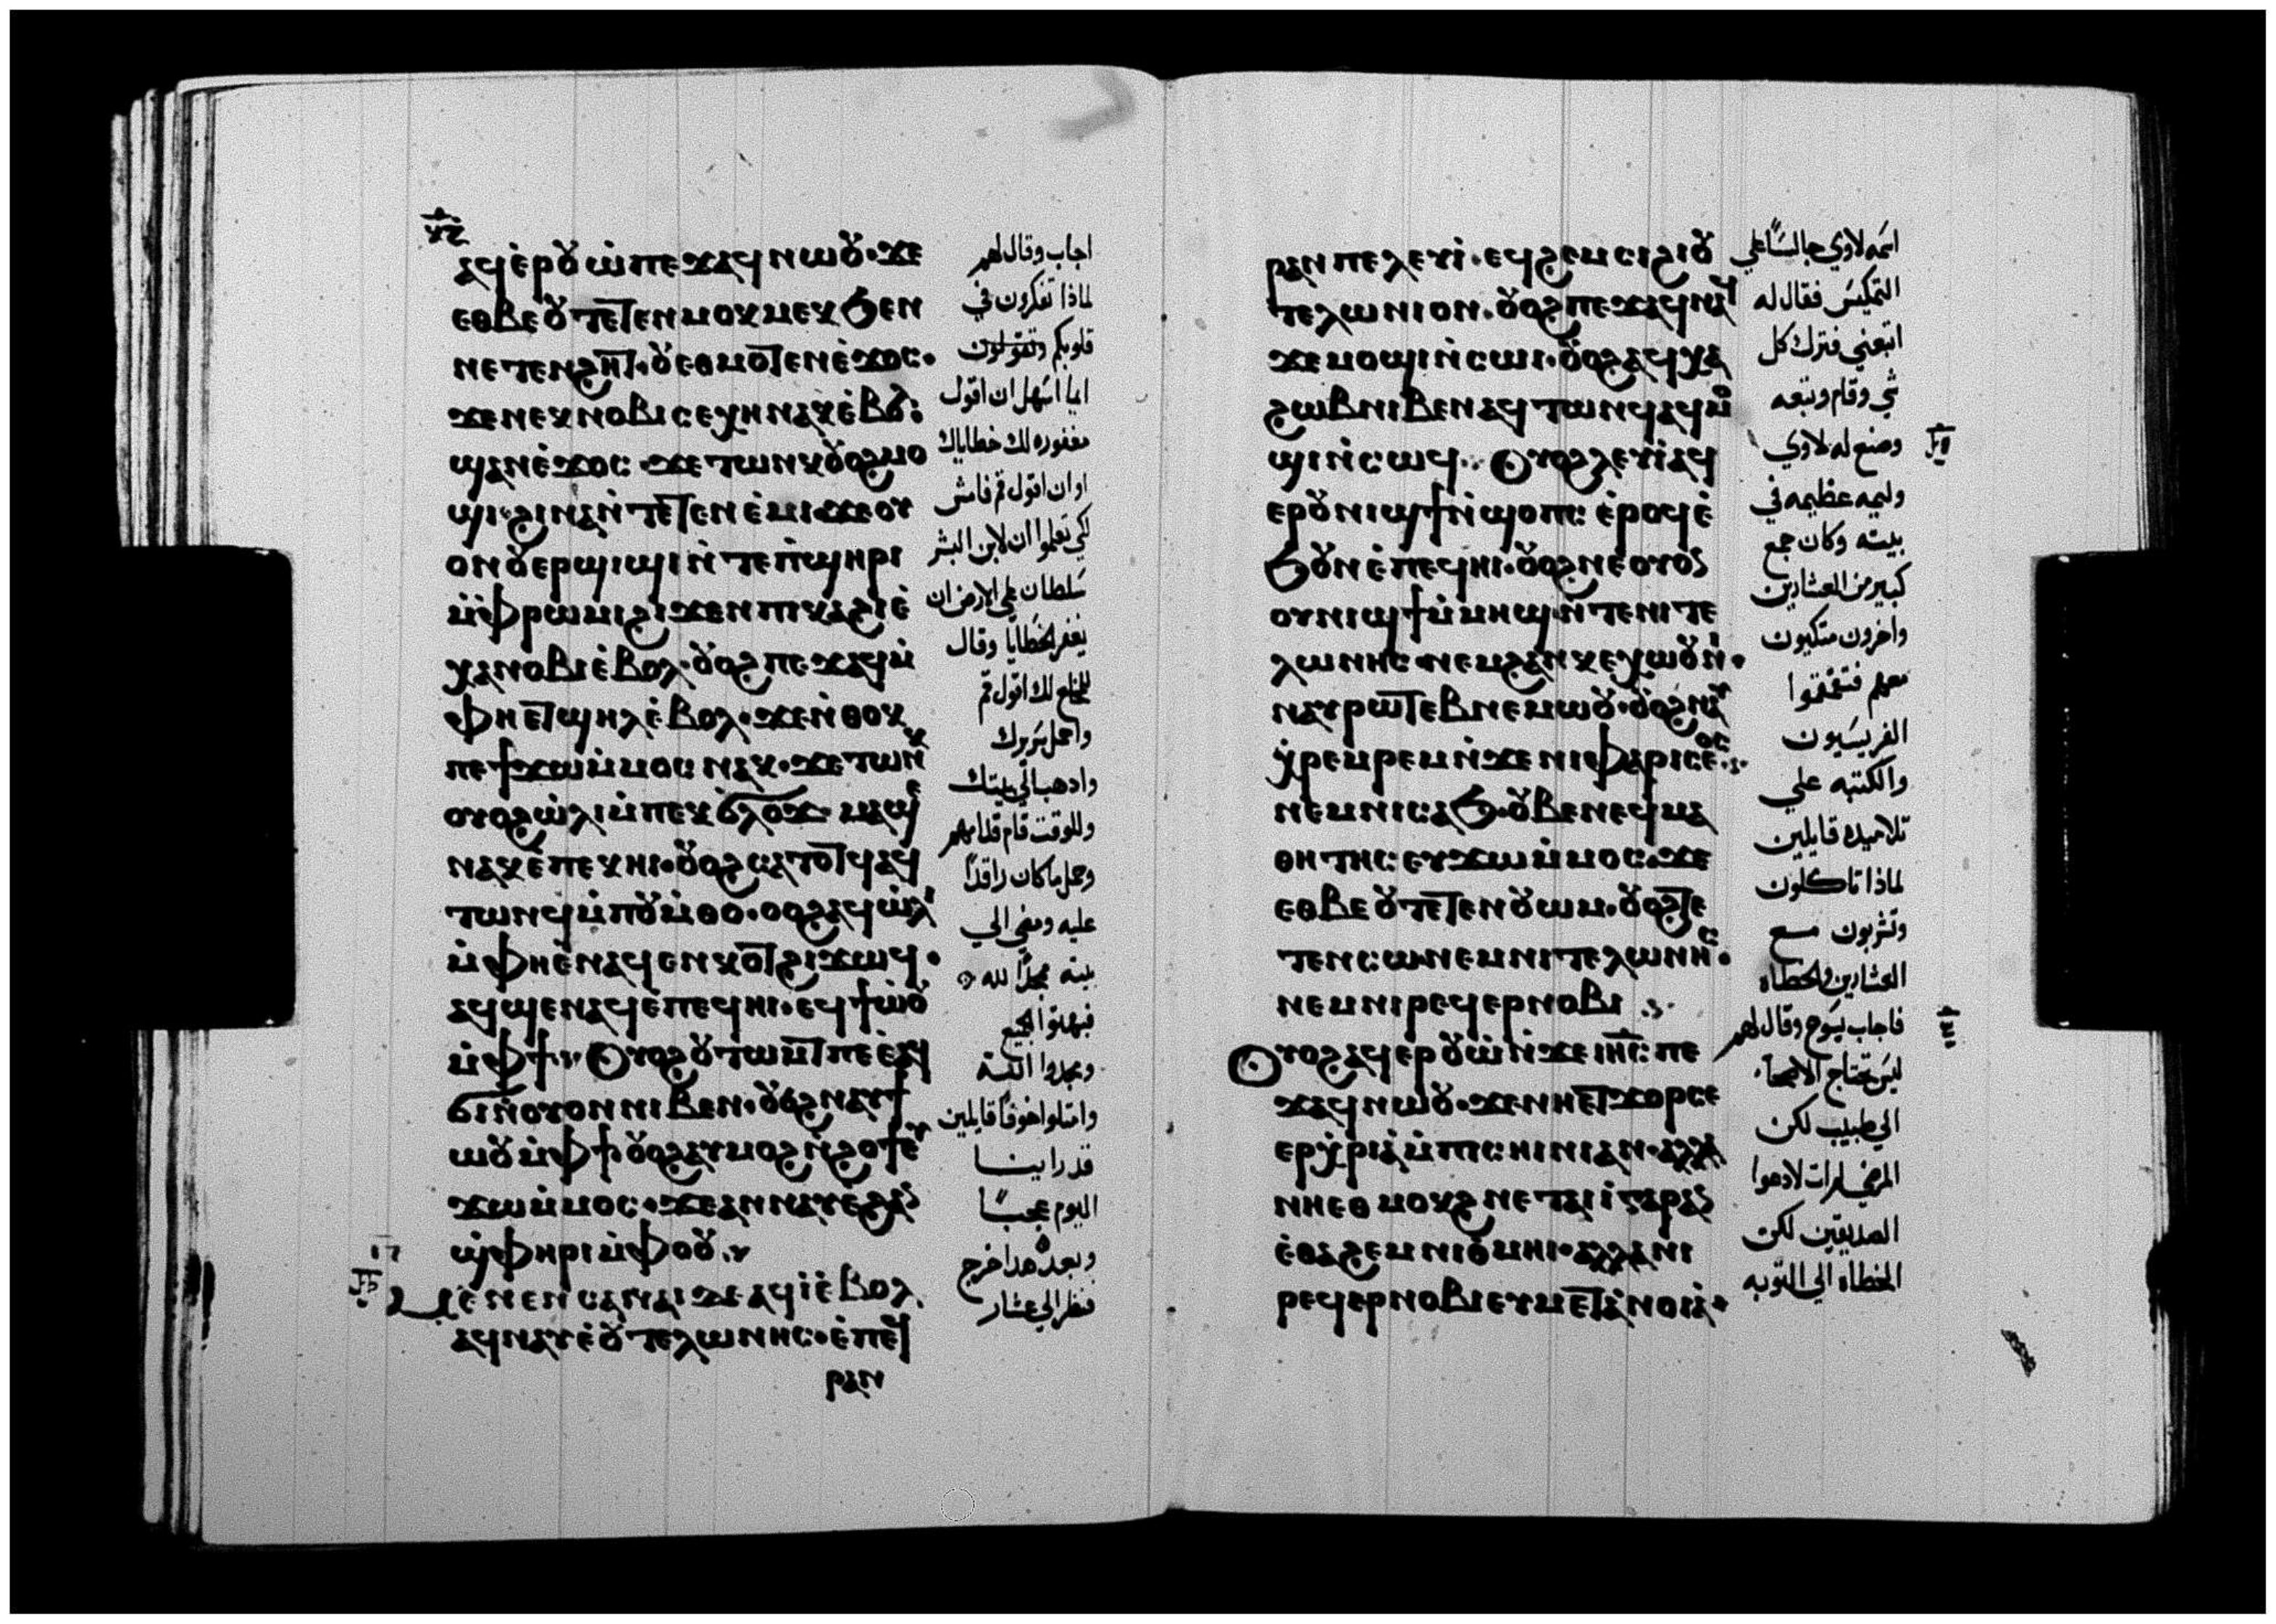 ⲁϥⲉ̀ⲣⲟⲩⲱ̀ ⲡⲉϫⲁϥ ⲛⲱⲟⲩ · ϫⲉ
ⲉⲑⲃⲉⲟⲩ ⲧⲉⲧⲉⲛⲙⲟⲕⲙⲉⲕ ϧⲉⲛ
ⲛⲉⲧⲉⲛϩⲏⲧ · ⲟⲩ ⲉⲑⲙⲟⲧⲉⲛ ⲉ̀ϫⲟⲥ ·
ϫⲉ ⲛⲉⲕⲛⲟⲃⲓ ⲥⲉⲭⲏ ⲛⲁⲕ ⲉ̀ⲃⲟⲗ:
ϣⲁⲛ ⲉ̀ϫⲟⲥ · ϫⲉ ⲧⲱⲛⲕ ⲟⲩⲟϩ ⲙⲟ
ϣⲓ · ϩⲓⲛⲁ ⲛ̀ⲧⲉⲧⲉⲛⲉ̀ⲙⲓ · ϫⲉ ⲟⲩ
ⲟⲛ ⲟⲩⲉⲣϣⲓϣⲓ ⲛ̀ⲧⲉ ⲡ̀ϣⲏⲣⲓ
ⲙ̀ⲫⲣⲱⲙⲓ ϩⲓϫⲉⲛ ⲡⲓⲕⲁϩⲓ ⲉ̀
ⲭⲁ ⲛⲟⲃⲓ ⲉ̀ⲃⲟⲗ · ⲟⲩⲟϩ ⲡⲉϫⲁϥ ⲙ̀
ⲫⲏⲉⲧϣⲏⲗ ⲉ̀ⲃⲟⲗ · ϫⲉ ⲛ̀ⲑⲟⲕ
ⲡⲉϯϫⲱ ⲙ̀ⲙⲟⲥ ⲛⲁⲕ · ϫⲉ ⲧⲱⲛⲕ
ⲟⲩⲟϩ ⲱ̀ⲗⲓ ⲙ̀ⲡⲉⲕϭⲗⲟϫ · ⲙⲁϣⲉ
ⲛⲁⲕ ⲉ̀ⲡⲉⲕⲏⲓ · ⲟⲩⲟϩ ⲥⲁⲧⲟⲧϥ ⲁϥ
ⲧⲱⲛϥ ⲙ̀ⲡⲟⲩⲙ̀ⲑⲟ · ⲟⲟϩ ⲁϥⲱ̀ⲗⲓ
ⲙ̀ⲫⲏⲉ̀ⲛⲁϥⲉⲛⲕⲟⲧ ϩⲓϫⲱϥ ·
ⲁϥϣⲉⲛⲁϥ ⲉ̀ⲡⲉϥⲏⲓ · ⲉϥϯⲱ̀ⲟⲩ
ⲙ̀ⲫϯ ⲟⲩⲟϩ ⲟⲩⲧⲱⲙⲧ ⲡⲉⲉ̀ⲧⲁϥ
ϭⲓ ⲛ̀ⲟⲩⲟⲛ ⲛⲓⲃⲉⲛ · ⲟⲩⲟϩ ⲛⲁⲩϯ
ⲱⲟⲩ ⲙ̀ⲫϯ ⲟⲩⲟϩ ⲁⲩⲙⲟϩ ⲛ̀ϩⲟϯ ⲉⲩ
ϫⲱ ⲙ̀ⲙⲟⲥ · ϫⲉ ⲁⲛⲛⲁⲩ ⲉ̀ϩⲁⲛ
ϣ̀ⲫⲏⲣⲓ ⲙ̀ⲫⲟⲟⲩ
ⲉ̀ⲛⲉⲛⲥⲁ ⲛⲁⲓ ⲇⲉ ⲁϥⲓ̀ ⲉ̀ⲃⲟⲗ
ⲁϥⲛⲁⲩ ⲉ̀ⲟⲩⲧⲉⲗⲱⲛⲏⲥ · ⲉ̀ⲡⲉϥ
ⲣⲁⲛ
اجاب وقال لهم
لماذا تفكرون في
قلوبكم وتقولون
ايما اسهل ان اقول
مغفوره لك خطاياك
او ان اقول قم فامش
لكي تعلموا ان لابن البشر
سلطان علي الارض ان
يغفر الخطايا وقال
للمخلع لك اقول قم
واحمل سريرك
وادهب الي بيتك
وللوقت قام قدامهم
وحمل ما كان راقدًا
عليه ومضي الي
بيته مجدًا لله
فبهتوا الجميع
ومجدوا الله
وامتلوا خوفًا قايلين
قد راينا
اليوم عجبًا
وبعد هدا خرج
فنظر الي عشار
ⲣⲁⲛ ⲡⲉ ⲗⲉⲩⲓ̀ · ⲉϥϩⲉⲙⲥⲓ ϩⲓⲟⲩ
ⲧⲉⲗⲱⲛⲓⲟⲛ · ⲟⲩⲟϩ ⲡⲉϫⲁϥ ⲛⲁϥ
ϫⲉ ⲙⲟϣⲓ ⲛ̀ⲥⲱⲓ · ⲟⲩⲟϩ ⲁϥⲭⲁ
ϩⲱⲃ ⲛⲓⲃⲉⲛ ⲁϥⲧⲱⲛϥ ⲁϥⲙⲟ
ϣⲓ ⲛ̀ⲥⲱϥ · ⲟⲩⲟϩ ⲗⲉⲩⲓ̀ ⲁϥ
ⲉⲣ ⲟⲩⲛⲓϣϯ ⲛ̀ϣⲟⲡⲥ ⲉ̀ⲣⲟϥ ⲉ̀
ϧⲟⲩⲛ ⲉ̀ⲡⲉϥⲏⲓ · ⲟⲩⲟϩ ⲛⲉ ⲟⲩⲟⲛ
ⲟⲩⲛⲓϣϯ ⲙ̀ⲙⲏϣ ⲛ̀ⲧⲉ ⲛⲓⲧⲉ
ⲗⲱⲛⲏⲥ · ⲛⲉⲙ ϩⲁⲛⲕⲉⲭⲱⲟⲩⲛⲓ̀ ·
ⲛⲁⲩⲣⲱⲧⲉⲃ ⲛⲉⲙⲱⲟⲩ · ⲟⲩⲟϩ ⲛⲁⲩ
ⲭ̀ⲣⲉⲙⲣⲉⲙ ⲛ̀ϫⲉ ⲛⲓⲫⲁⲣⲓⲥⲉⲟⲥ
ⲛⲉⲙ ⲛⲓⲥⲁϧ · ⲟⲩⲃⲉ ⲛⲉϥⲙⲁ
ⲑⲏⲧⲏⲥ ⲉⲩϫⲱ ⲙ̀ⲙⲟⲥ · ϫⲉ
ⲉⲑⲃⲉⲟⲩ ⲧⲉⲧⲉⲛⲟⲩⲱⲙ · ⲟⲩⲟϩ ⲧⲉ
ⲧⲉⲛⲥⲱ ⲛⲉⲙ ⲛⲓⲧⲉⲗⲱⲛⲏⲥ ·
ⲛⲉⲙ ⲛⲓⲣⲉϥⲉⲣⲛⲟⲃⲓ
ⲟⲩⲟϩ ⲁϥⲉⲣⲟⲩⲱ̀ ⲛ̀ϫⲉ ⲓⲏⲥ ⲡⲉ
ϫⲁϥ ⲛⲱⲟⲩ · ϫⲉ ⲛⲏⲉⲧϫⲟⲣ ⲥⲉ
ⲉⲣⲭ̀ⲣⲓⲁ ⲙ̀ⲡⲥⲏⲓⲛⲓ ⲁⲛ · ⲁⲗⲗⲁ
ⲛⲏⲉⲑⲙⲟⲕϩ ⲛⲉⲧⲁⲓⲓ̀ ⲅⲁⲣ ⲁⲛ
ⲉ̀ⲑⲁϩⲉⲙ ⲛⲓⲑⲙⲏⲓ · ⲁⲗⲗⲁ ⲛⲓ
ⲣⲉϥⲉⲣⲛⲟⲃⲓ ⲉⲩⲙⲉⲧⲁⲛⲟⲓⲁ ·
اسمه لاوي جالسًا علي
التمكيس فقال له
اتبعني فترك كل
شي وقام وتبعه
وصنع له لاوي
وليمه عظيمه في
بيته وكان جمع
كبير من العشارين
واخرون متكيون
معهم فتقمقموا
الفريسيون
والكتبه علي
تلاميده قايلين
لماذا تاكلون
وتشربون مع
العشارين والخطاه
فاجاب يسوع وقال لهم
ليس تحتاج الاصحا
الي طبيب لكن
المرضي لم ات لادعوا
الصديقين لكن
الخطاه الي التوبه